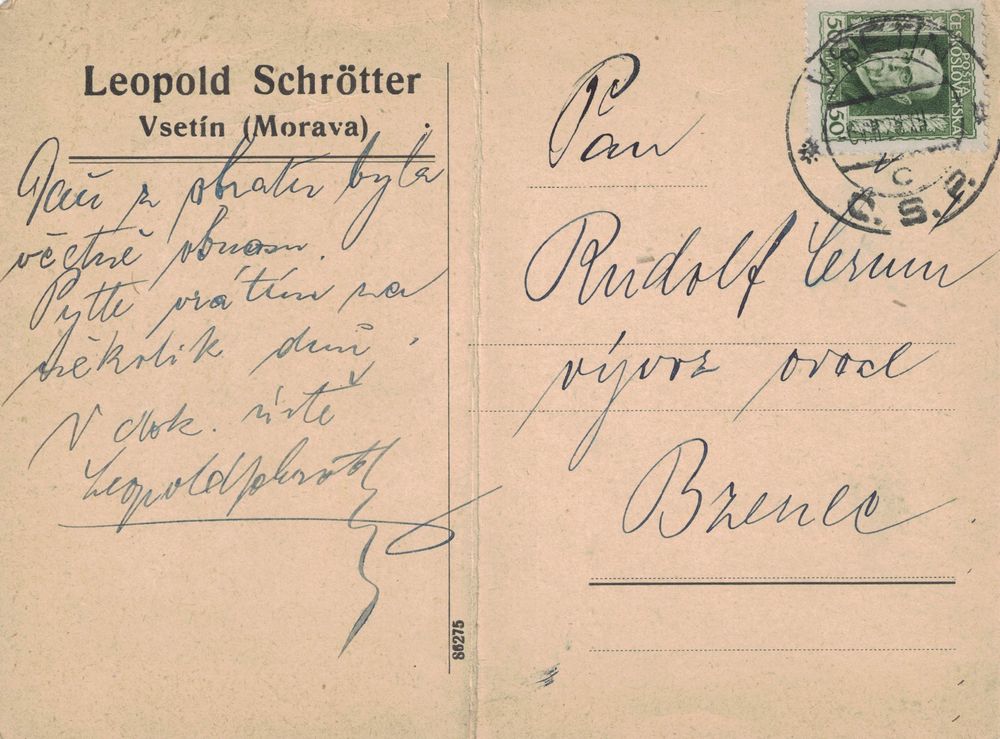 Leopold Schrötter
Vsetín (Morava)
Daň z obratu byla
včetně obnosu.
Pytle vrátím za
několik dnů.
V dok. úctě
Leopold Schrött
86275
Pan
Rudolf
vývoz ovoce
Bzenec
POŠTA
ČESKOSLOVENSKÁ
50 50
VSETÍN
C
Č.S.R.